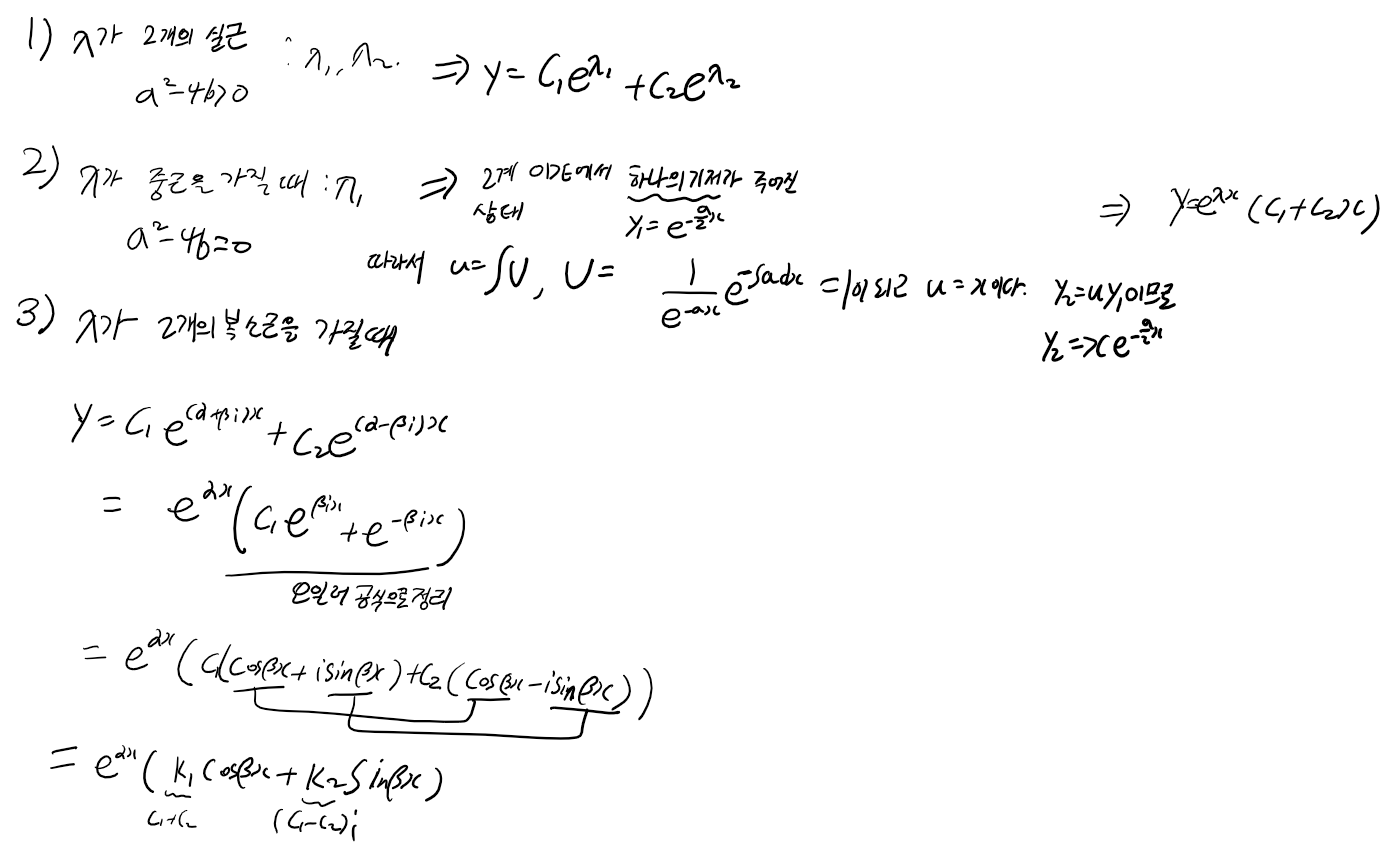 1) λ가 2개의 실근 : λ₁, λ₂. ⇒ y = C₁e^λ₁ + C₂e^λ₂
a²-4b>0
2) λ가 중근을 가질 때 : λ₁ ⇒ 2계 ODE에서 하나의 기저가 주어진
상태 y₁ = e^(-a/2 x) ⇒ y=e^λx (C₁+C₂x)
a²-4b=0
따라서 u=∫U, U = 1/e^(-ax) e^(-∫adx) = 1이 되고 u = x이다. y₂=uy₁이므로
y₂=xe^(-a/2 x)
3) λ가 2개의 복소근을 가질때
y = C₁e^((α+βi)x) + C₂e^((α-βi)x)
= e^αx (C₁e^βix + e^-βix)
오일러 공식으로 정리
= e^αx (C₁(cosβx + isinβx) + C₂(cosβx - isinβx))
= e^αx (K₁cosβx + K₂sinβx)
C₁+C₂ (C₁-C₂)i